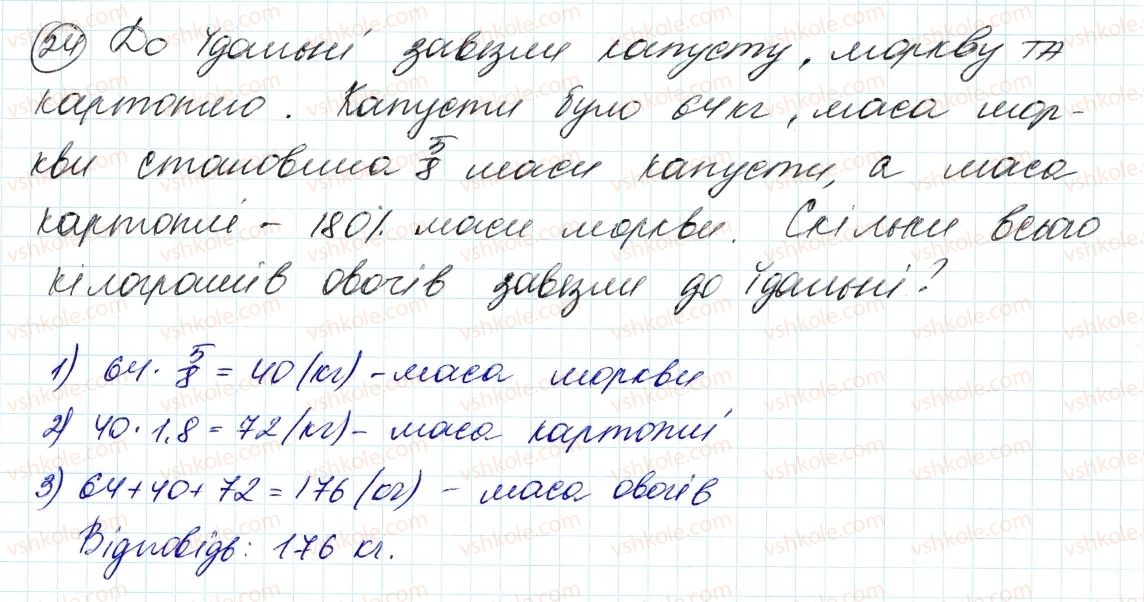 24 До їдальні завезли капусту, моркву та
картоплю. Капусти було 64 кг, маса мор-
кви становила 5/8 маси капусти, а маса
картоплі - 180% маси моркви. Скільки всього
кілограмів овочів завезли до їдальні?
1) 64 · 5/8 = 40 (кг) - маса моркви
2) 40 · 1,8 = 72 (кг) - маса картоплі
3) 64 + 40 + 72 = 176 (кг) - маса овочів
Відповідь: 176 кг.